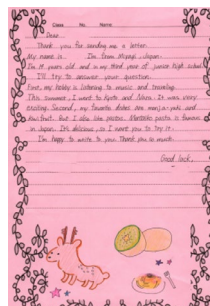 Class No. Name
Dear
Thank you for sending me a letter.
My name is . I'm from Miyagi, Japan.
I'm 14 years old and in my third year of junior high school.
I'll try to answer your question.
First, my hobby is listening to music and traveling.
This summer, I went to Kyoto and Nara. It was very
exciting. Second, my favorite dishes are monja-yaki and
kiwi fruit. But I also like pasta. Mentaiko pasta is famous
in Japan. It's delicious, so I want you to try it.
I'm happy to write to you. Thank you so much.
Good luck.